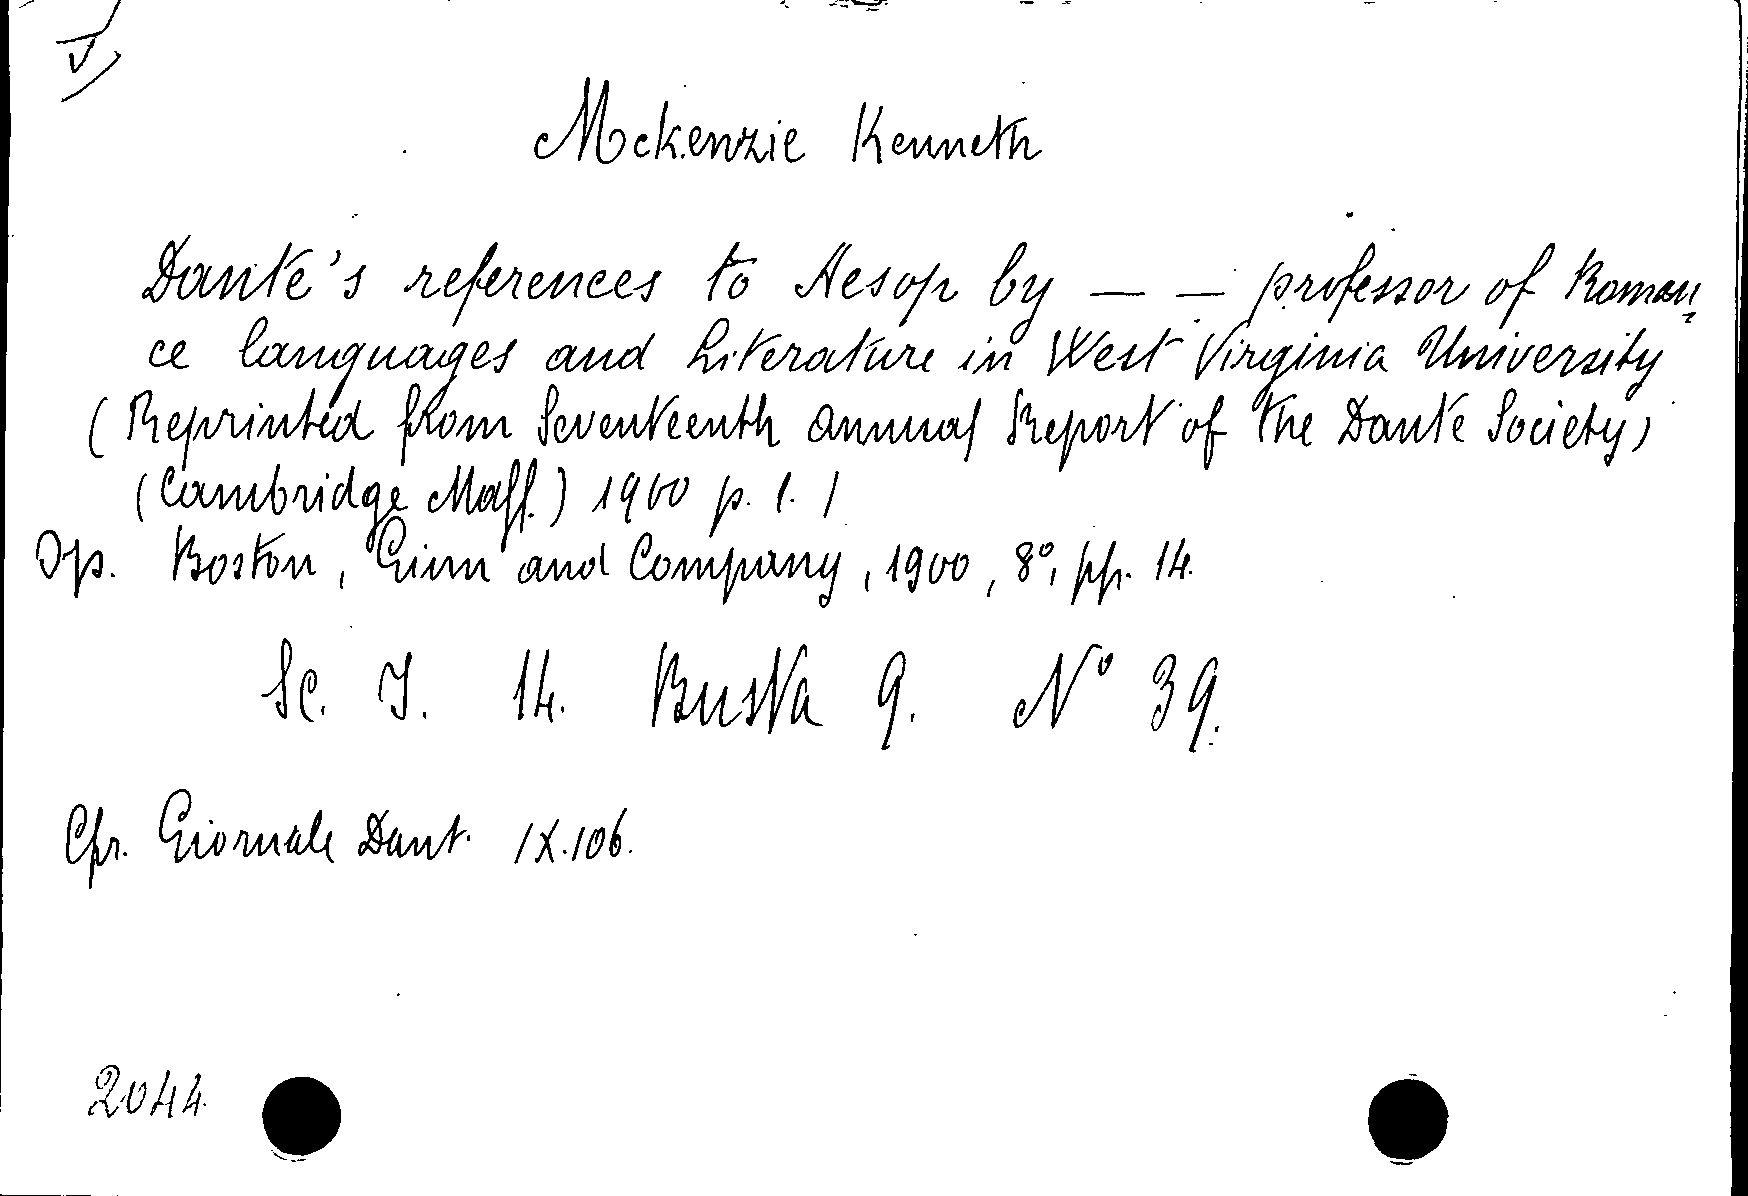 Mckenzie Kenneth
Dante's references to Aesop by — — professor of Roman
ce languages and Literature in West Virginia University
(Reprinted from Seventeenth annual Report of the Dante Society)
(Cambridge Mass.) 1900 p. 1. /
Op. Boston, Ginn and Company, 1900, 8°, pp. 14.
Sc. I. 14. Busta 9. N° 39.
Cfr. Giornale Dant. IX.106.
2044